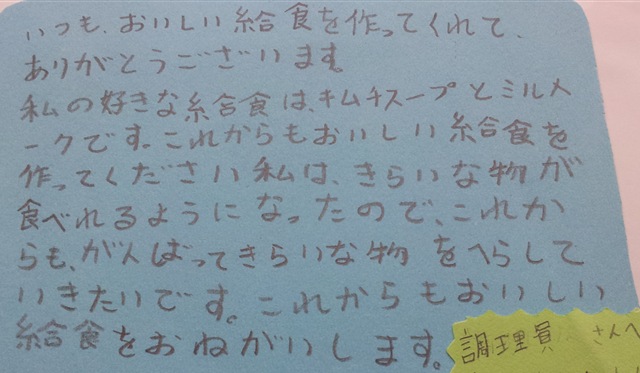 いつも、おいしい給食を作ってくれて、
ありがとうございます。
私の好きな給食は、キムチスープとミルメ
ークです。これからもおいしい給食を
作ってください私は、きらいな物が
食べれるようになったので、これか
らも、がんばってきらいな物をへらして
いきたいです。これからもおいしい
給食をおねがいします。
調理員さんへ